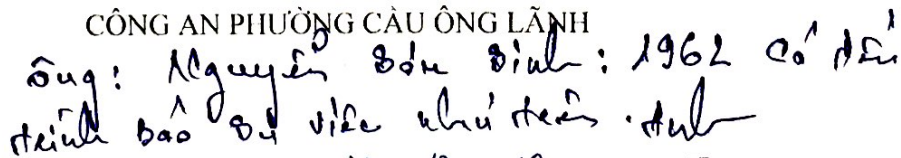 CÔNG AN PHƯỜNG CẦU ÔNG LÃNH
Ông: Nguyễn sinh: 1962 có đến
trình báo sự việc như trên.